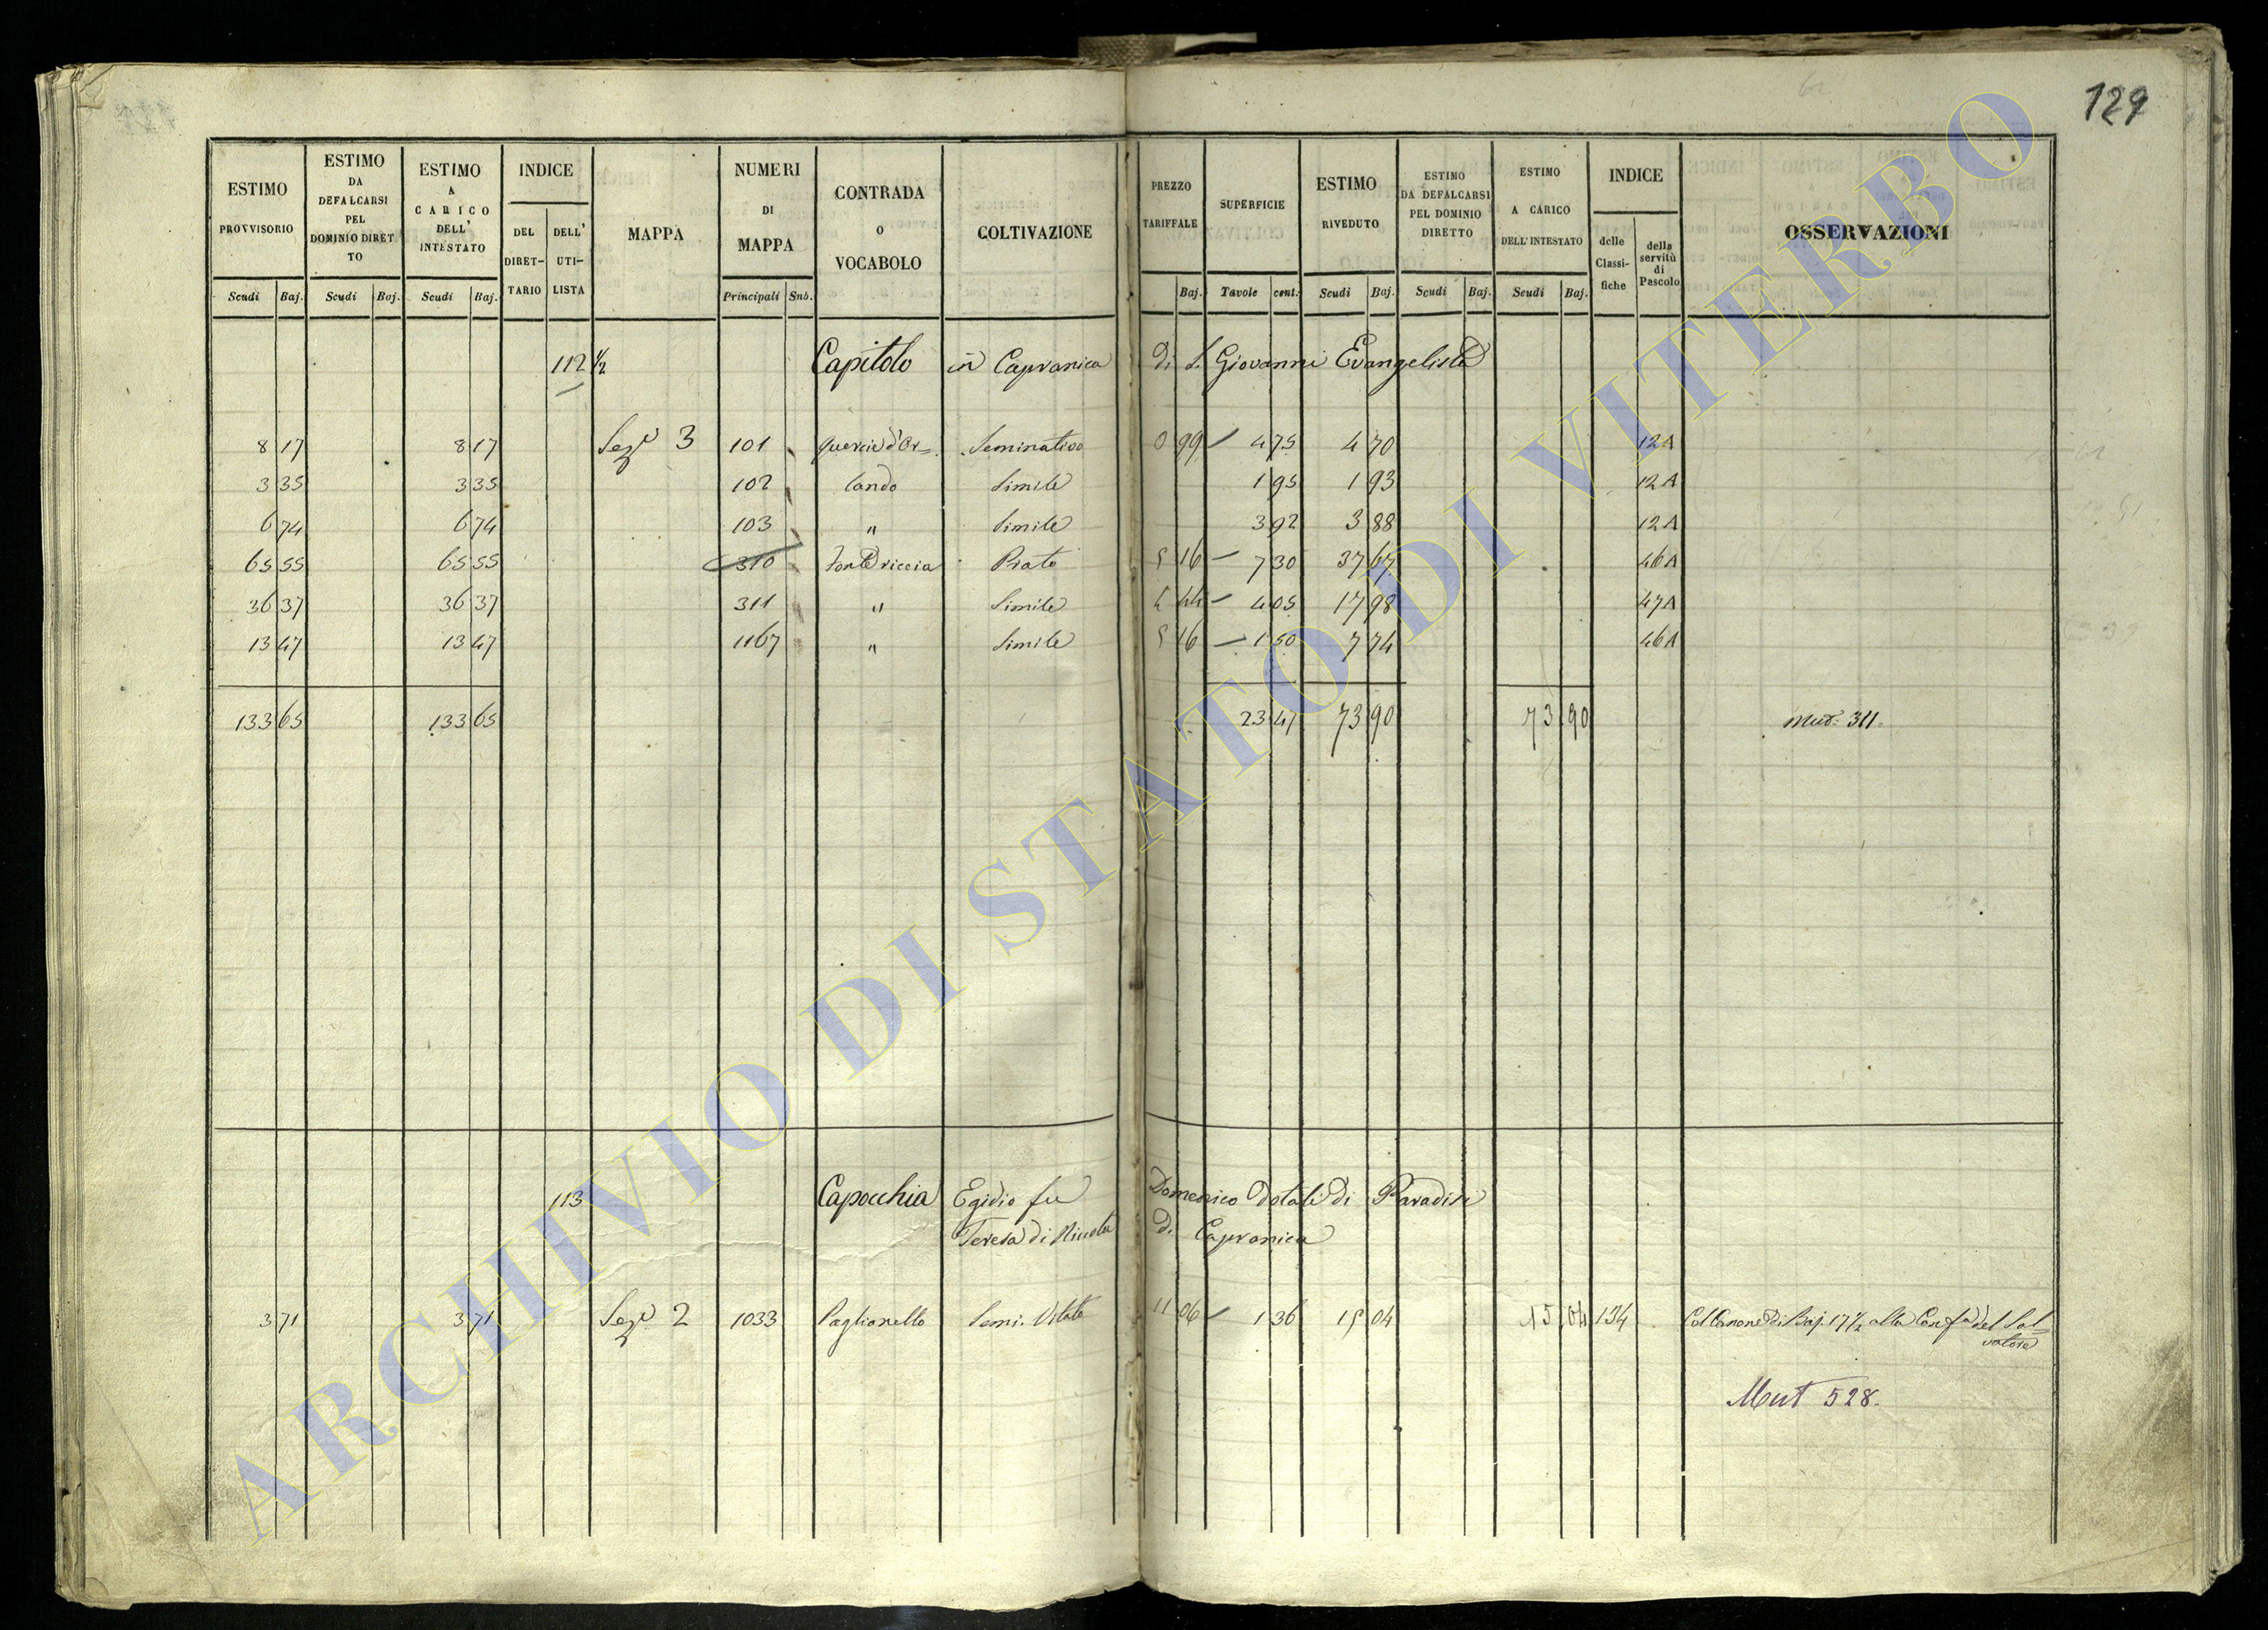 129
ESTIMO PROVVISORIO
ESTIMO DA DEFALCARSI PEL DOMINIO DIRETTO
ESTIMO A CARICO DELL' INTESTATO
INDICE
DEL DIRETTARIO
DELL' UTILISTA
MAPPA
NUMERI DI MAPPA
CONTRADA O VOCABOLO
COLTIVAZIONE
PREZZO TARIFFALE
SUPERFICIE
ESTIMO RIVEDUTO
ESTIMO DA DEFALCARSI PEL DOMINIO DIRETTO
ESTIMO A CARICO DELL'INTESTATO
INDICE
delle Classifiche
della servitù di Pascolo
OSSERVAZIONI
Scudi Baj. Scudi Baj. Scudi Baj. Principali Sub. Baj. Tavole cent. Scudi Baj. Scudi Baj. Scudi Baj.
112 1/2 Capitolo in Capranica di S. Giovanni Evangelista
8 17 8 17 Sez.e 3 101 Quercie d'Or= Seminativo 0 99 4 75 4 70 12 A
3 35 3 35 102 lando Simile 1 95 1 93 12 A
6 74 6 74 103 " Simile 3 92 3 88 12 A
65 55 65 55 310 Fonte riccia Prato 5 16 7 30 37 67 46 A
36 37 36 37 311 " Simile 4 44 4 05 17 98 47 A
13 47 13 47 1167 " Simile 5 16 1 50 7 74 46 A
133 65 133 65 23 47 73 90 73 90 Mut. 311.
113 Capocchia Egidio fu Domenico dotali di Paradisi
Teresa di Niccola di Capranica
3 71 3 71 Sez.e 2 1033 Paglionello Semi. Vitato 11 06 1 36 15 04 15 04 134 Col Canone di Baj. 17 1/2 alla Conf.a del Sal=
vatore
Mut 528.
ARCHIVIO DI STATO DI VITERBO